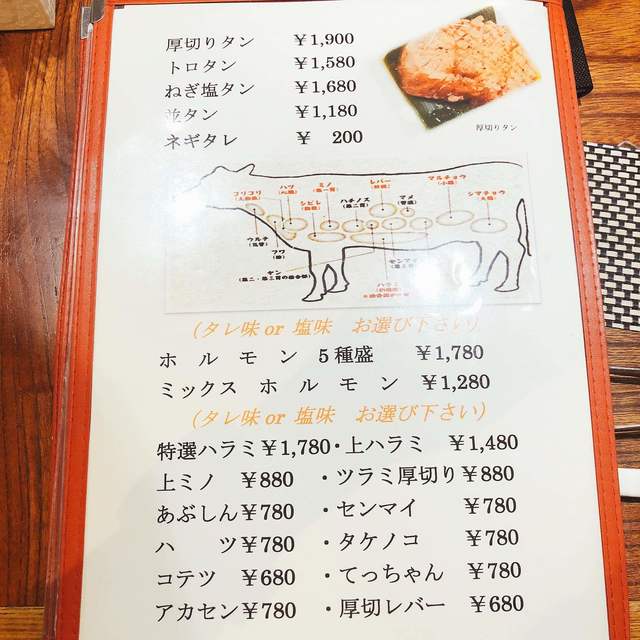 厚切りタン ￥1,900
トロタン ￥1,580
ねぎ塩タン ￥1,680
並タン ￥1,180
ネギタレ ￥ 200
厚切りタン
コリコリ
ハツ
ミノ
シビレ
ハチノス
レバー
マメ
マルチョウ
シマチョウ
ウルテ
フワ
ヤン
センマイ
ハラミ
（タレ味 or 塩味 お選び下さい）
ホ ル モ ン 5種盛 ￥1,780
ミックス ホ ル モ ン ￥1,280
（タレ味 or 塩味 お選び下さい）
特選ハラミ￥1,780・上ハラミ ￥1,480
上ミノ ￥880 ・ツラミ厚切り￥880
あぶしん￥780 ・センマイ ￥780
ハ ツ￥780 ・タケノコ ￥780
コテツ ￥680 ・てっちゃん ￥780
アカセン￥780 ・厚切レバー ￥680